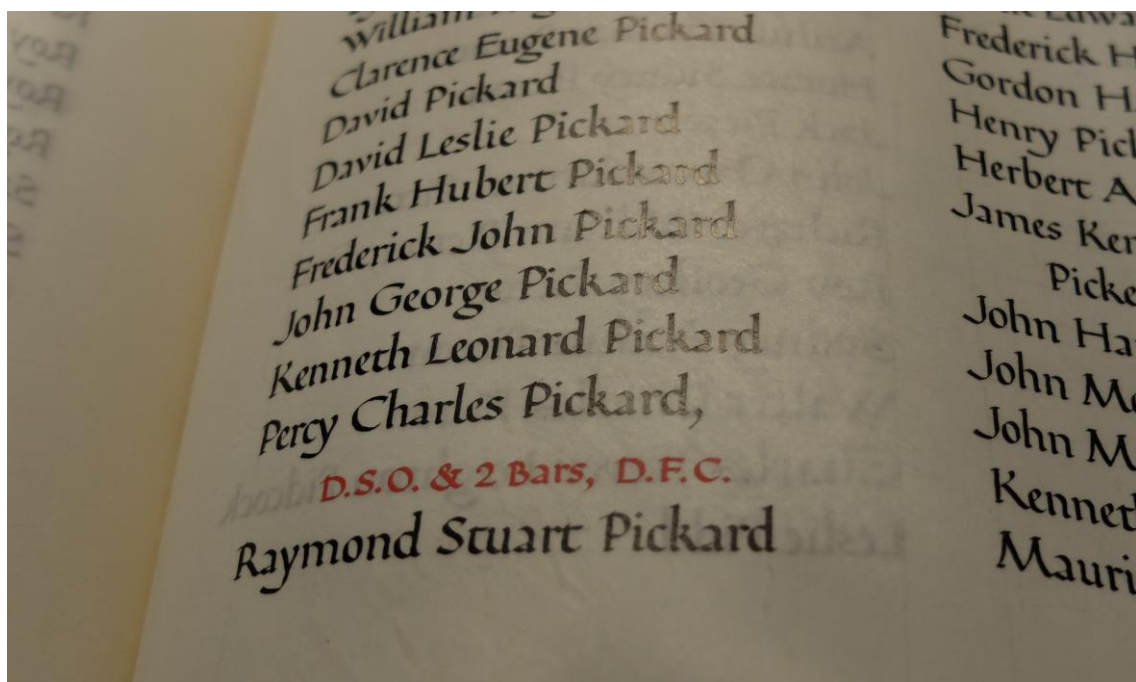 William
Clarence Eugene Pickard
David Pickard
David Leslie Pickard
Frank Hubert Pickard
Frederick John Pickard
John George Pickard
Kenneth Leonard Pickard
Percy Charles Pickard,
D.S.O. & 2 Bars, D.F.C.
Raymond Stuart Pickard
Frederick H
Gordon H
Henry Pick
Herbert A
James Ken
Picke
John Ha
John Mc
John M
Kennet
Mauri